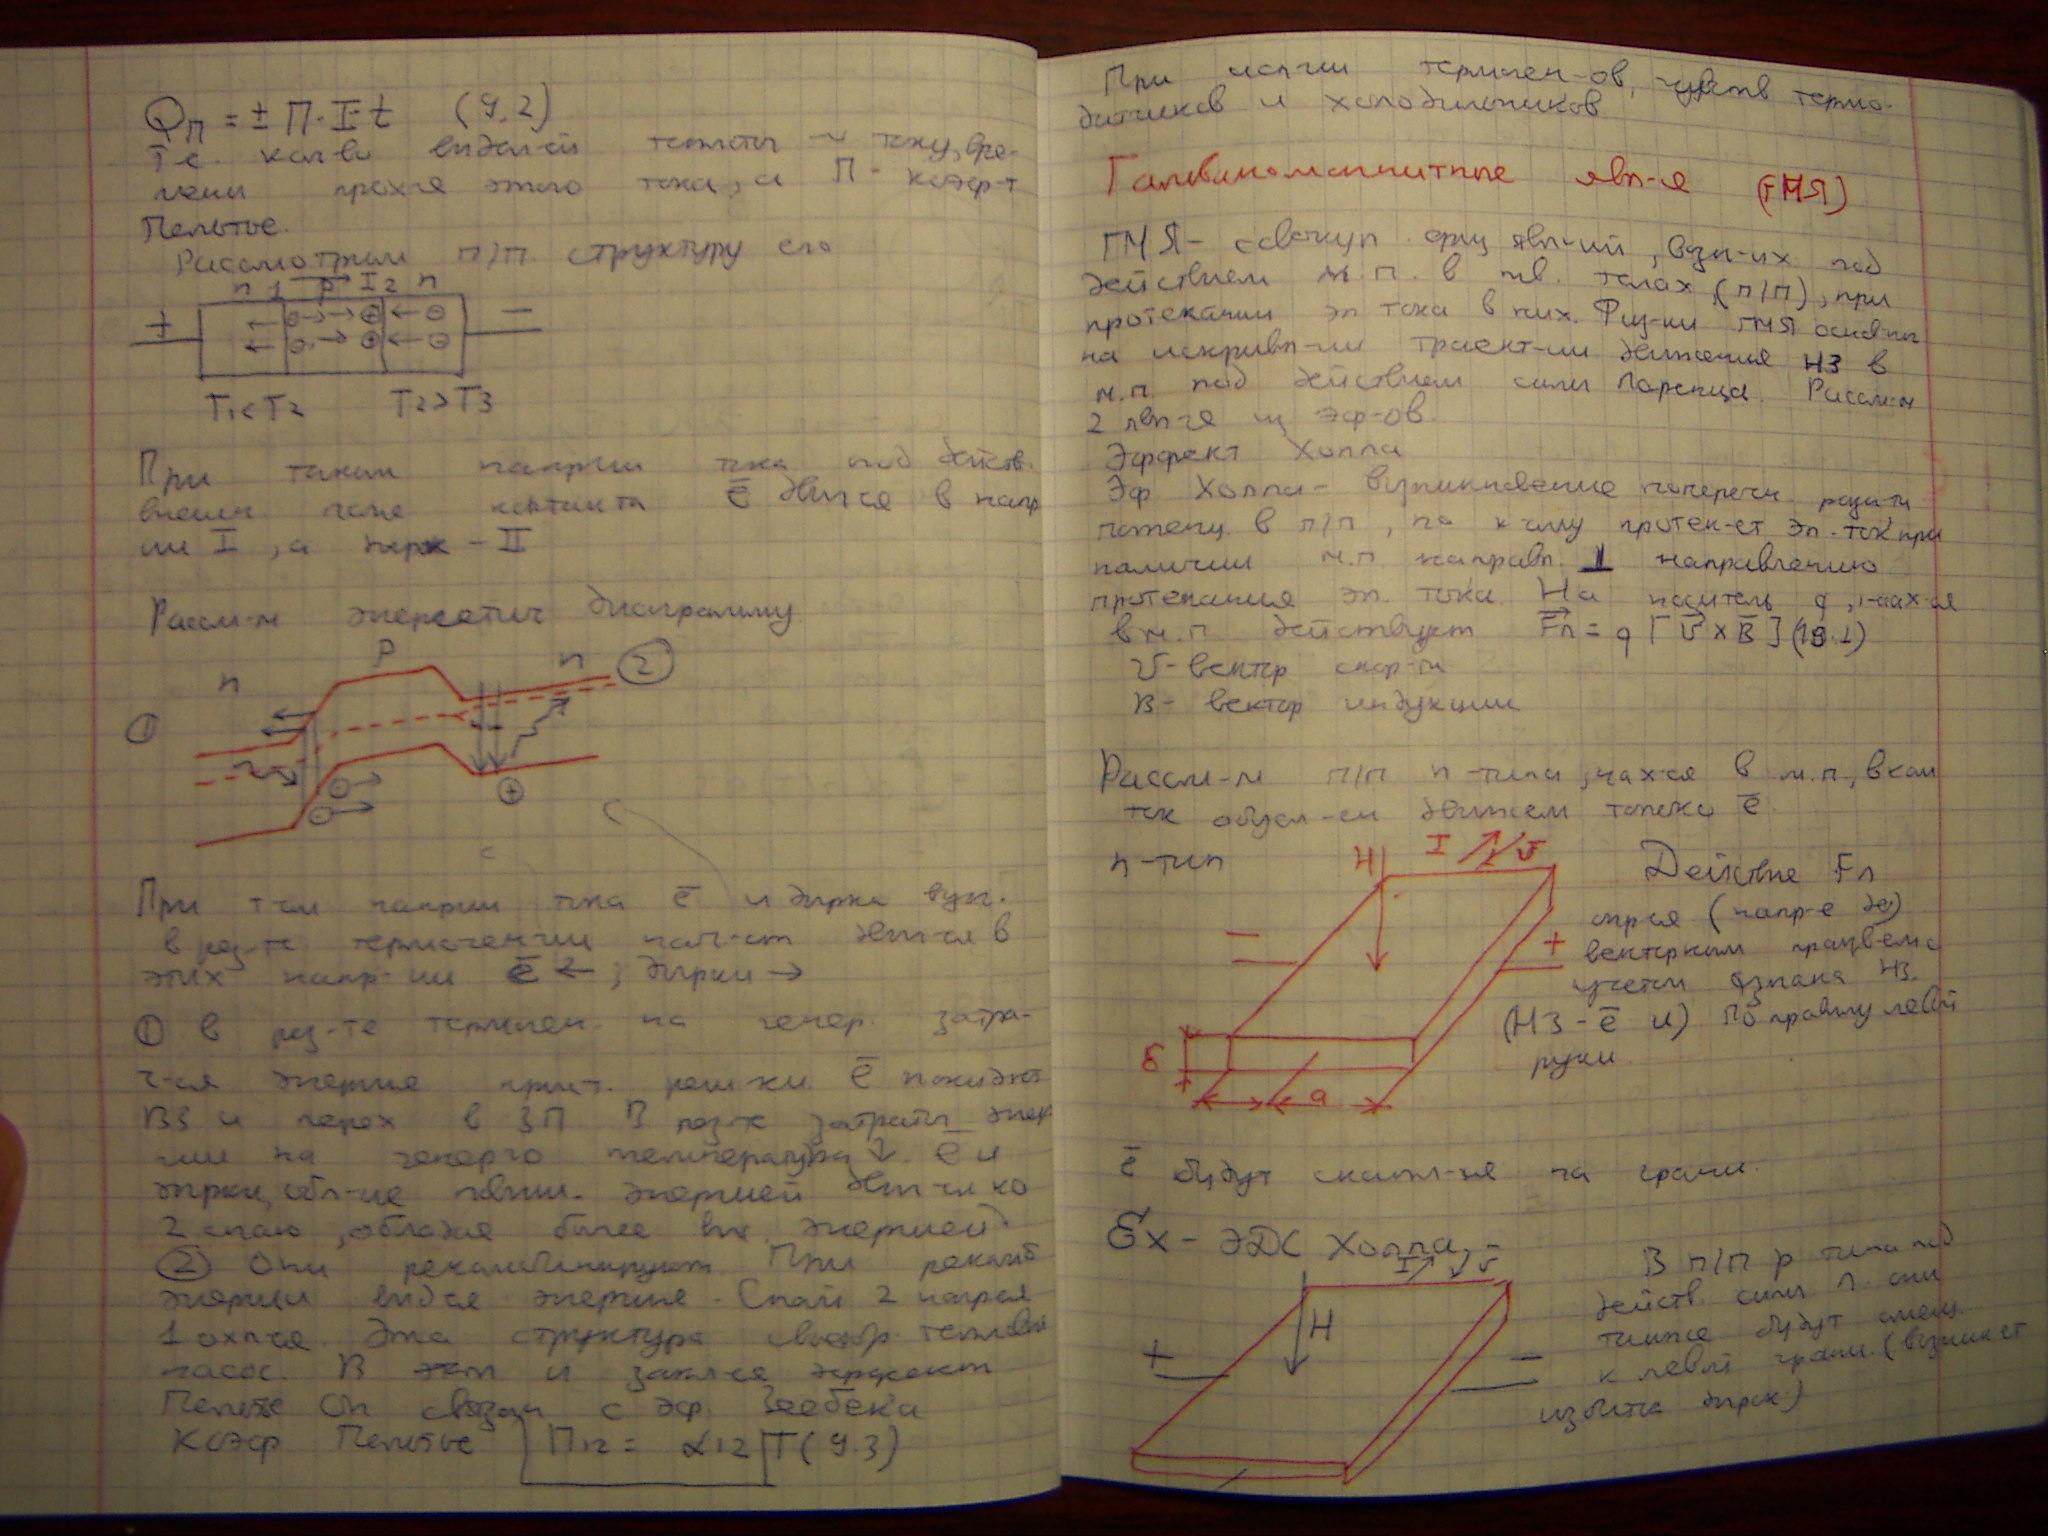 Qп = ± П·I·t (9.2)
Т.е. кол-во выдел-ой теплоты ~ току, вре-
мени прох-я этого тока, а П - коэф-т
Пельтье.
Рассмотрим п/п структуру
n 1 p I 2 n
+ −
T1<T2 T2>T3
При таком напр-ии тока под действ.
внешн поле контакта ē дви-ся в напр
ии I, а дырок - II
Рассм-м энергетич диаграмму
n p n 2
1
+
При так напр-ии тока ē и дырка
в рез-те термогенции нач-ют дви-ся в
этих напр-ии ē ←; дырки →
① В рез-те термоген. на генер. затра-
ч-ся энергия крист. решетки ē покидает
ВЗ и перех в ЗП В рез-те затраты энер
гии на генерю температура ↓. ē и
дырки, обл-ие повыш. энергией дви-ся ко
2 спаю, обладая более выс. энергией
② Они рекомбинируют. При рекомб
энергии выд-ся энергия. Спай 2 нагр-ся
1 охл-ся. Эта структура тепловой
насос. В этом и закл-ся эффект
Пельтье Он связан с эф. Зеебека
Коэф Пельтье П12 = α12 T (9.3)
При термоген-ов, чувств термо-
датчиков и холодильников
Гальваномагнитные явл-я (ГМЯ)
ГМЯ - совокуп физ явл-ий, возн-их под
действием м.п. в тв. телах (п/п), при
протекании эл тока в них. Физ-ки ГМЯ основ-ны
на искривл-ии траект-ии движения НЗ в
м.п. под действием силы Лоренца. Рассм-м
2 явл-я из эф-ов.
Эффект Холла
Эф Холла - возникновение поперечн разн-ти
потенц. в п/п, по к-ому протек-ет эл. ток при
наличии м.п направл. ⊥ направлению
протекания эл. тока. На носитель q, нах-ся
в м.п действует Fл = q [V × B] (19.1)
V - вектор скор-ти
B - вектор индукции
Рассм-м п/п n-типа, нах-ся в м.п, в ком
ток обусл-ен движем только ē.
n-тип H I V Действие Fл
− + опр-ся (напр-е её)
векторным произв-ем с
учетом знака НЗ.
(НЗ - ē и) По правилу левой
руки.
δ a
ē будут скапл-ся на грани.
Ex - ЭДС Холла, -
I V
H
+ −
В п/п p типа под
действ. силы Л они
также будут смещ.
к левой грани. (возникает
избыток дырок)